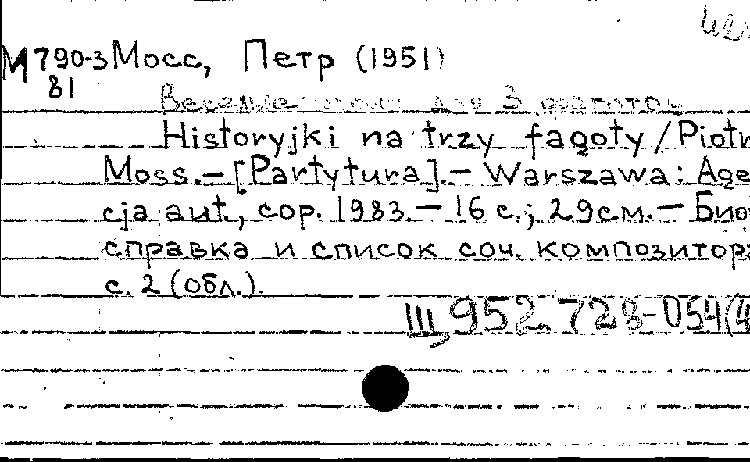 М790-3 Мосс, Петр (1951)
81
Веселые для 3 фаготов
Historyjki na trzy fagoty / Piotr
Moss. — [Partytura]. — Warszawa: Age
cja aut., cop. 1983. — 16 с.; 29см. — Био
справка и список соч. композитора
с. 2 (обл.).
Щ952.728-054(4